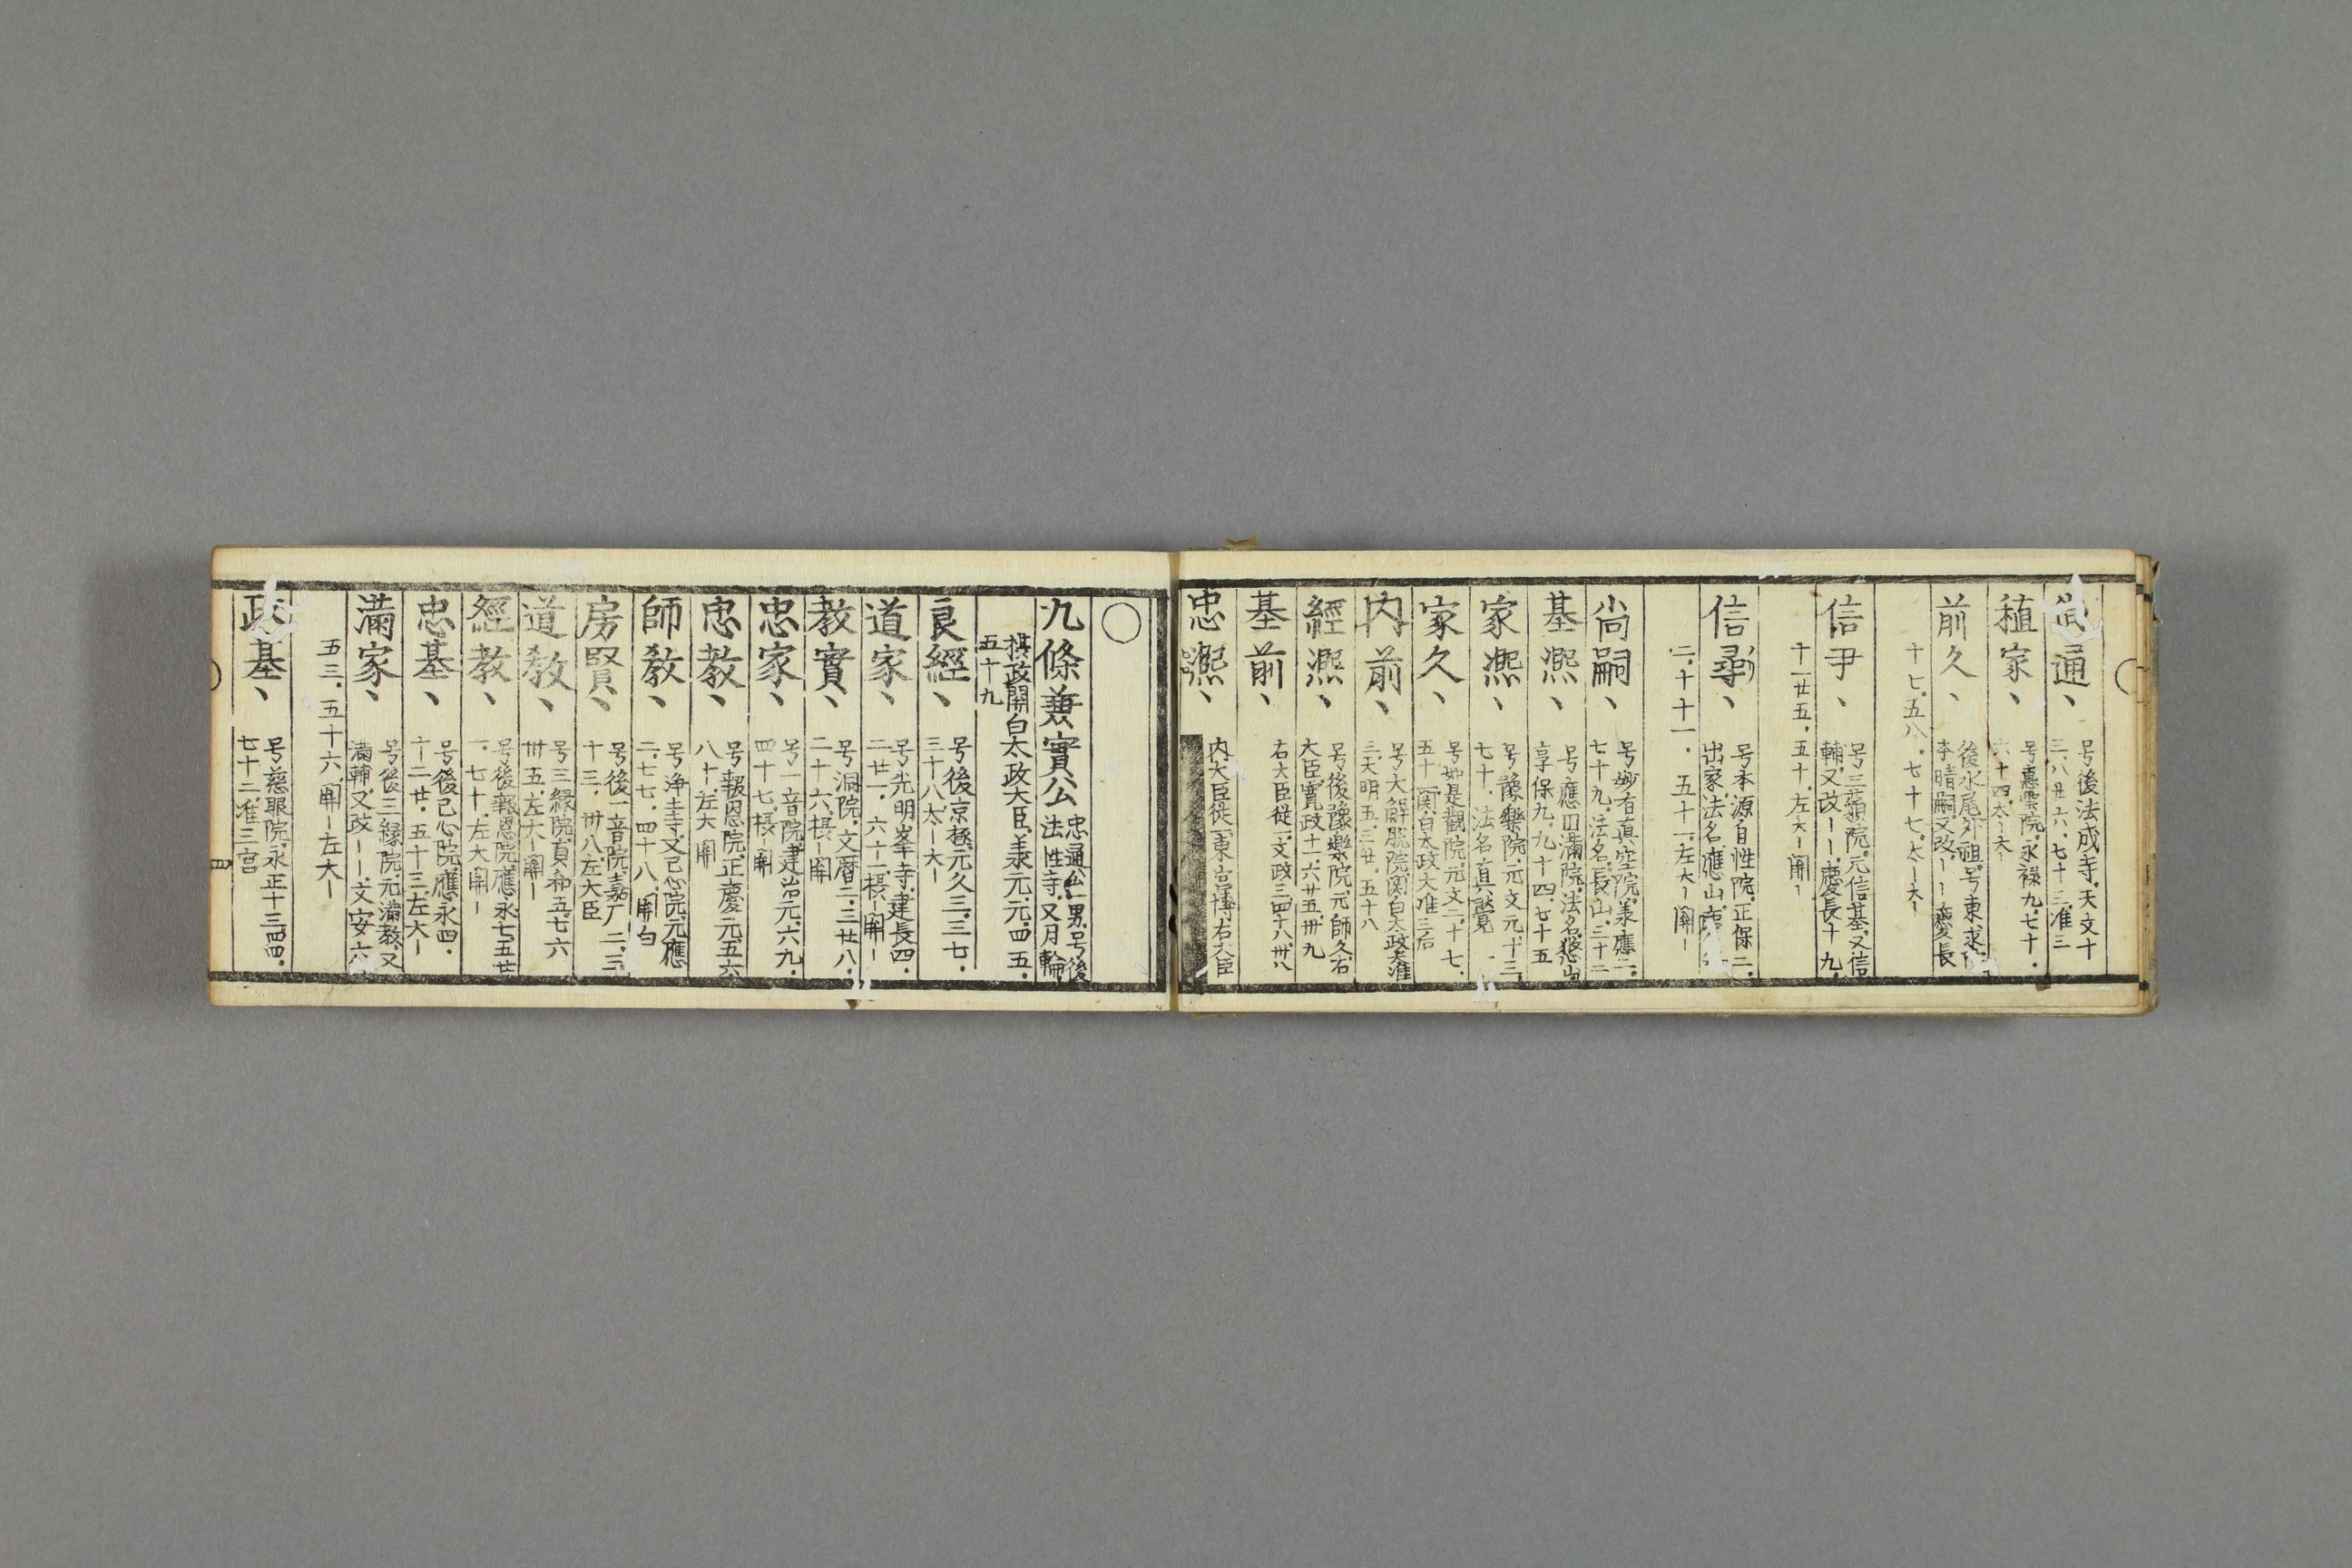 尚通、
号後法成寺、天文十
三、八廿六、七十三、准三
稙家、
号惠雲院、永禄九、七十、
六十四、太ー大ー
前久、
後水尾外祖、号東求院
李晴嗣、又改ーー、慶長
十七、五八、七十七、太ー大ー
信尹、
号三藐院、元信基、又信
輔、又改ーー、慶長十九、
十一廿五、五十、左大ー関ー
信尋、
号本源自性院、正保二、
出家、法名應山、
二、十十一、五十一、左大ー関ー
尚嗣、
号妙有真空院、義應二、
七十九、法名長山、三十二
基熙、
号應円満院、法名悠山
享保九、九十四、七十五
家熙、
号豫樂院、元文元、十三、
七十、法名真覺
家久、
号如是觀院、元文二、十七、
五十一、関白太政大准三后
内前、
号大解脱院、関白太政大准
三、天明五、三廿、五十八
經熙、
号後豫樂院、元師久、右
大臣、寛政十一、六廿五、卅九
基前、
右大臣従一、文政三、四十八、卅八
忠熙、
内大臣従一東宮傅右大臣
○
九條兼實公
忠通公一男、号後
法性寺、又月輪
摂政関白太政大臣、義元、元、四五、
五十九
良經、
号後京極、元久三、三七、
三十八、太ー大ー
道家、
号光明峯寺、建長四、
二廿一、六十一、摂ー関ー
教實、
号洞院、文暦二、三廿八、
二十六、摂ー関
忠家、
号一音院、建治元、六九、
四十七、摂、関
忠教、
号報恩院、正慶元、五六
八十、左大関
師教、
号浄土寺、又己心院、元應
二、七七、四十八、関白
房賢、
号後一音院、嘉厂二、三
十三、卅八、左大臣
道教、
号三縁院、貞和五、七六
卅五、左大ー関ー
經教、
号後報恩院、應永七、五廿
一、七十、左大関ー
忠基、
号後己心院、應永四、
十二廿、五十三、左大ー
滿家、
号後三縁院、元滿教、又
滿輔、又改ーー、文安六
五三、五十六、関ー左大ー
政基、
号慈眼院、永正十三、四四、
七十二、准三宮